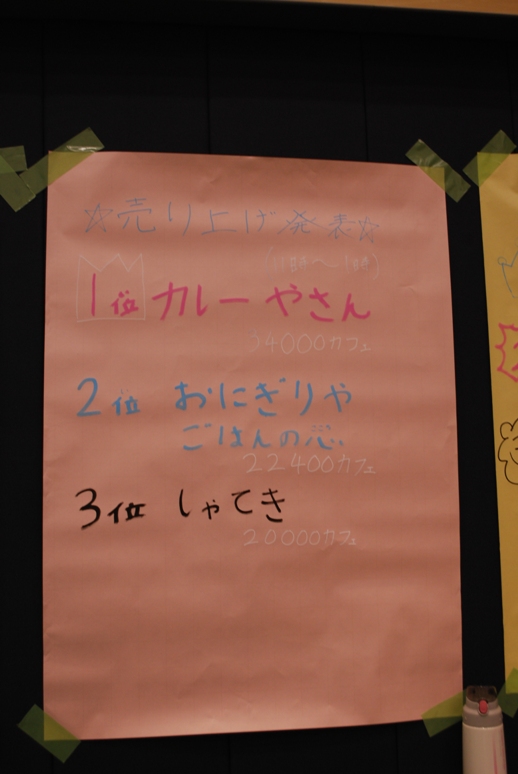 ☆売り上げ発表☆
(11時〜1時)
1位 カレーやさん
34000カフェ
2位 おにぎりや
ごはんの恋
22400カフェ
3位 しゃてき
20000カフェ